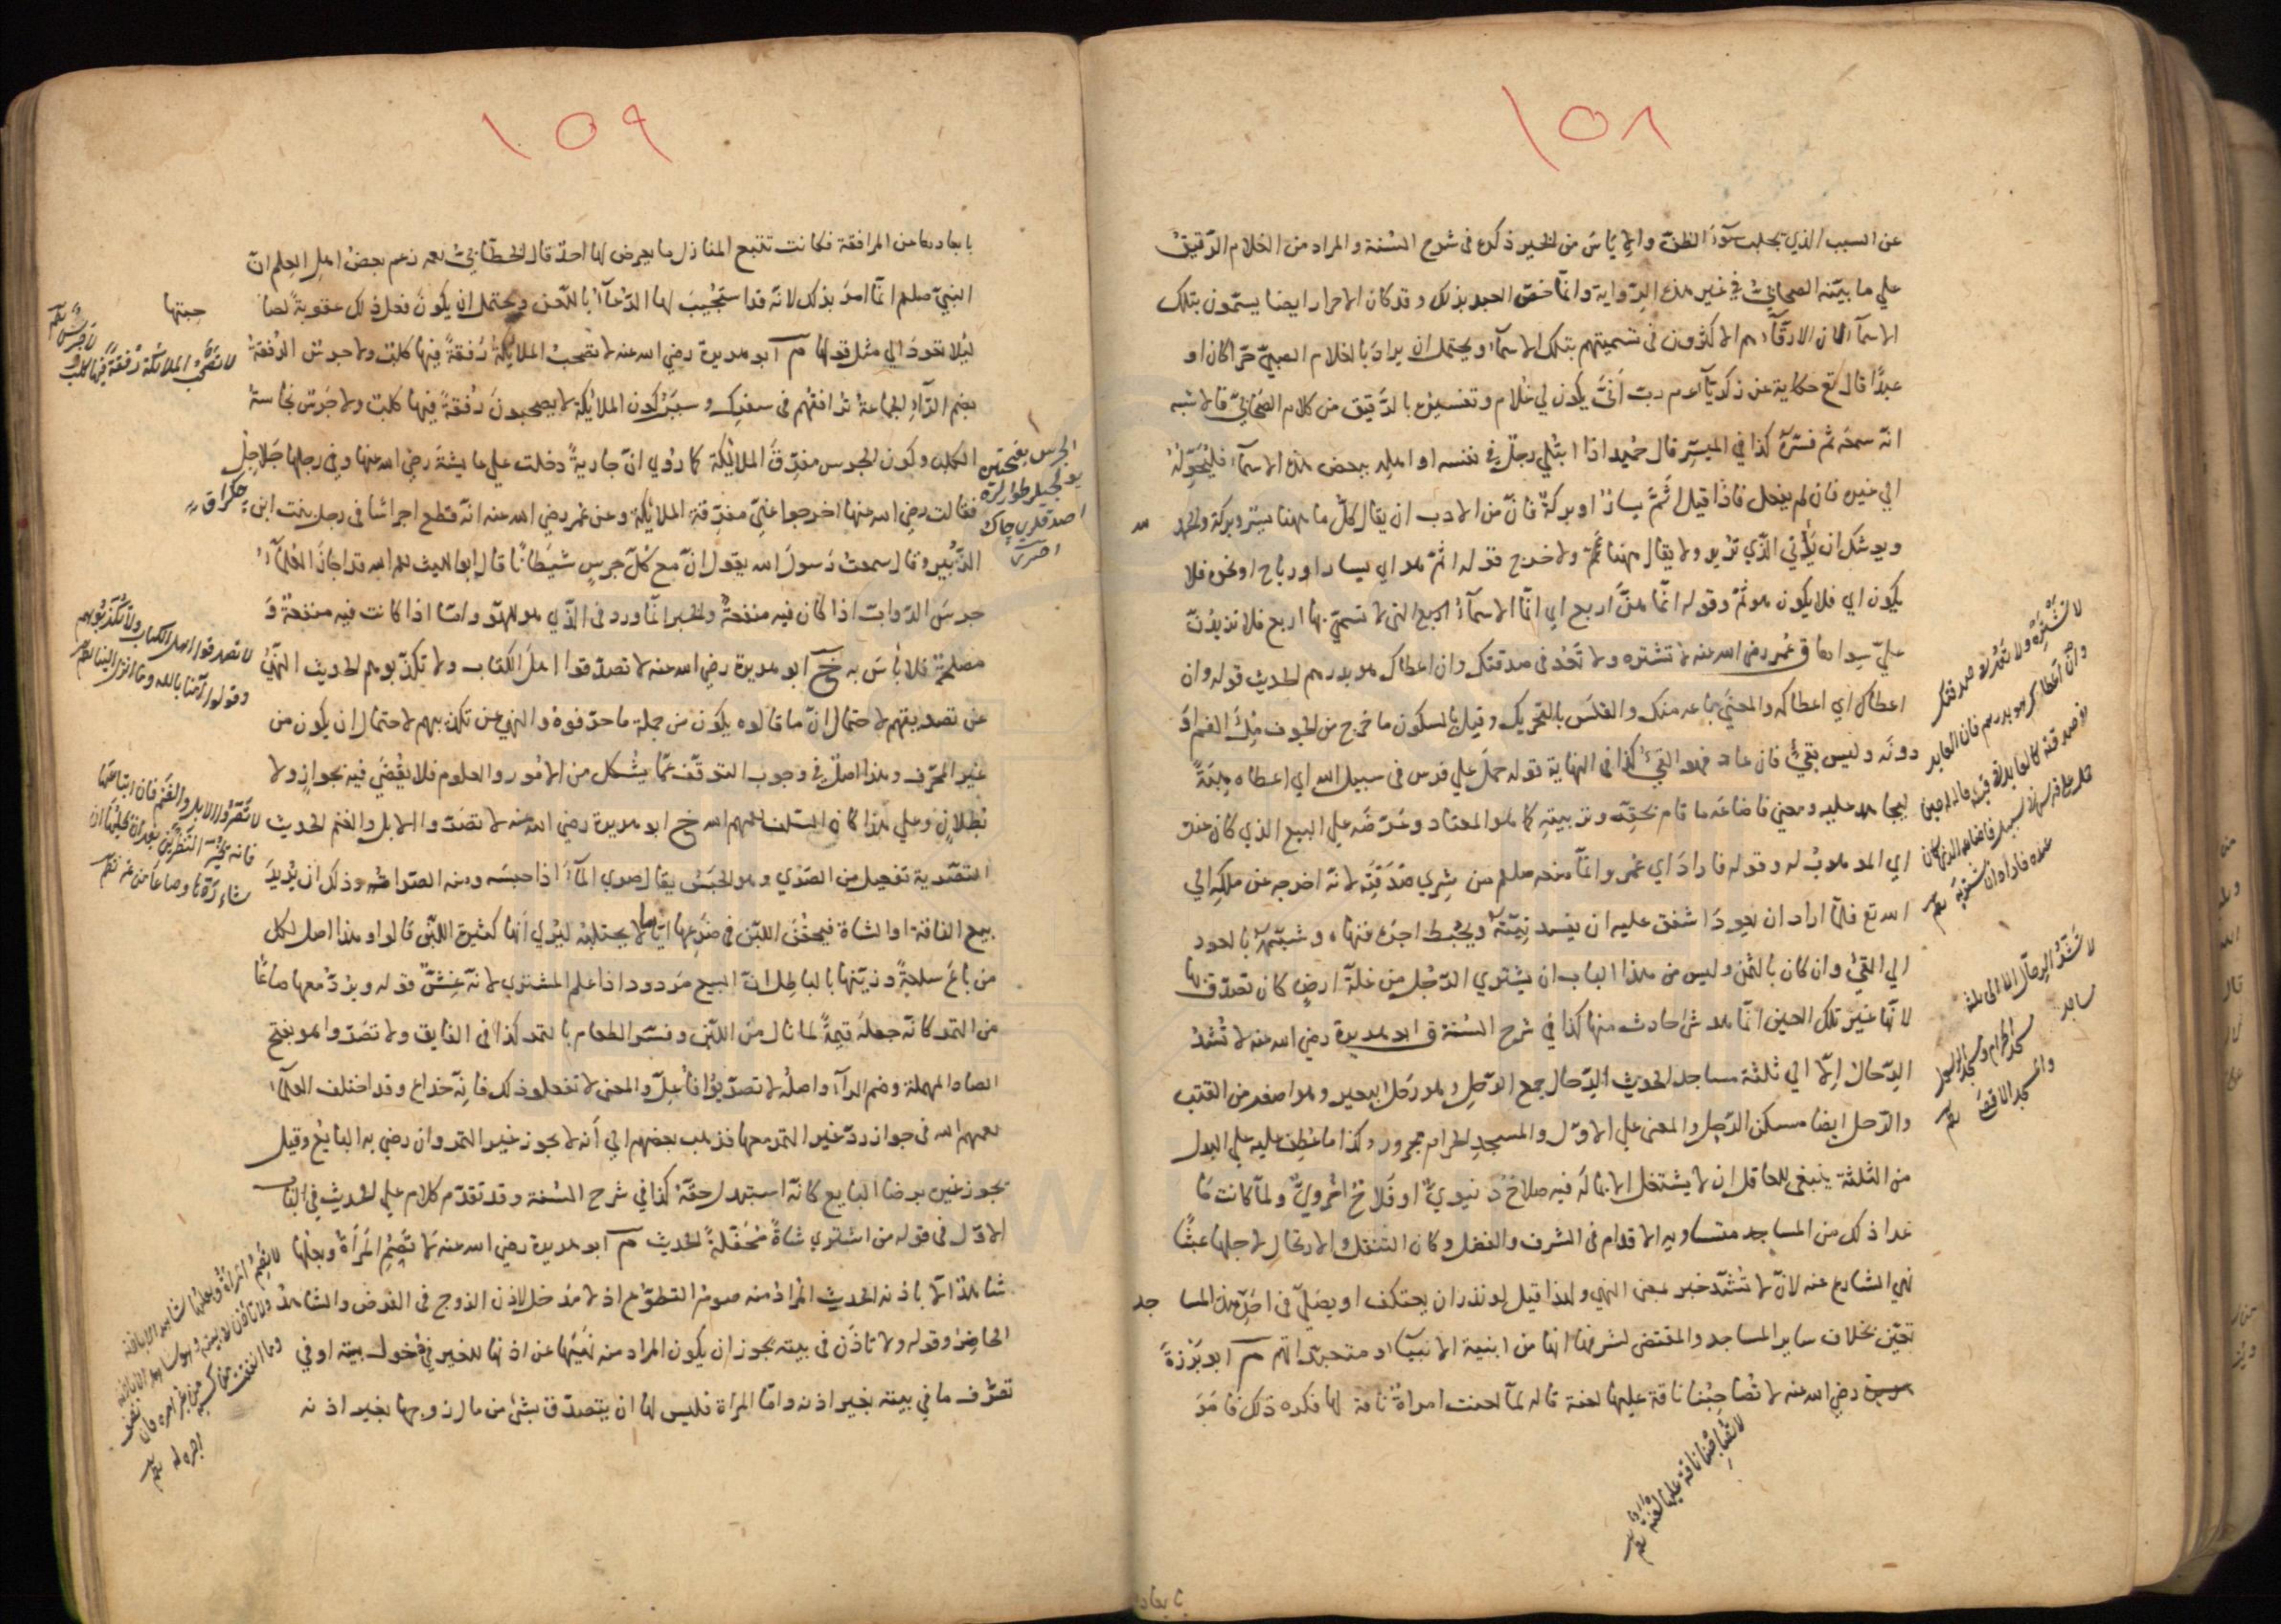 ١٥٨
عن السبب الذي يجلب سوء الظن والإياس من الخير ذكره في شرح السنة والمراد من الغلام الرقيق
علي ما بيّنه الصحابيّ في غير هذه الرّواية وانّما خصّ العبد بذلك وقد كان الاحرار ايضا يسمّون بتلك
الاسماء لان الارقّاء هم الاكثرون في تسميتهم بتلك الاسماء ويحتمل ان يراد بالغلام الصبيّ حرّا كان او
عبدًا قال تع حكاية عن زكريّاء م ربّ أنّى يكون لي غلام وتفسيره بالرّقيق من كلام الصحابيّ قالاشبه
انّه سمعه ثم فسّره كذا في الميسّر قال حُميد اذا ابتُلي رجلٌ في نفسه او اهله ببعض هذه الاسماء فليُحَوِّلْهُ
الي غيره فان لم يفعل فاذا قيل أثَمَّ يسارٌ او بركةٌ فانّ من الادب ان يقال كلّ ما ههنا يسر وبركة والحمد لله
ويوشك ان يأتي الّذي تريد ولا يقال ههنا ثَمّة ولا خرج قوله اثَمّ هو اي يسار او رباح او نحوه فلا
يكون اي فلا يكون هو ثَمَّ وقوله انّما هنّ اربع اي انّما الاسماءُ الاربع التي لا تسمّي بها اربع فلا تزيدُنّ
عليّ سواها ق عُمر رضي الله عنه لا تشتره ولا تَعُد في صدقتك وان اعطاكه بدرهم الحديث قوله وان
اعطاك اي اعطاكه والمعنيّ باعه منك والقلَس بالتحريك وقيل بالسكون ما خرج من الجوف مِلْءَ الفم او
دونَه وليس بقيء فان عاد فهو القيءُ كذا في النهاية قوله حَمَلَ علي فرس في سبيل الله اي اعطاه هِبَةً
ليجاهد عليه ومعني فاضاعَه ما قام بحقّه وتربيته كما هو المعتاد وعرّضَه علي البيع الذي كان عنده
اي الموهوبُ له وقوله فارادَ اي عُمر وانّما منعه صلعم من شِري صَدَقتِه لانّه اخرجه عن ملكه الي
الله تع فلمّا اراد ان يعودَ اشفق عليه ان يفسد نيّتَهُ ويُحبِط اجرَه فنهاه وشبّهه بالعود
الي القيء وان كان بالثمن وليس من هذا الباب ان يشتري الرّجُل من غلّة ارضٍ كان تصدّق بها
لانّها غير تلك العين انّما هو شئ حادث منها كذا في شرح السّنة ق ابو هريرة رضي الله عنه لا تُشَدُّ
الرِّحالُ إلّا الي ثلثة مساجد الحديث الرّحال جمع الرّحلِ وهو رَحْل البعير وهو اصغر من القتب
والرّحل ايضا مسكن الرّجل والمعنى علي الاوّل والمسجدِ الحرام مجرور وكذا ما عُطِف عليه علي البدل
من الثلثة ينبغي للعاقل ان لا يشتغل الا بما لَهُ فيه صلاحٌ دنيويّ او فَلاحٌ اُخرويٌّ ولمّا كانت مَا
عدا ذلك من المساجد متساويه الاقدام في الشرف والفضل وكان التنقّل والارتحال لاجلها عبثًا
نهي الشارع عنه لانّ لا تُشَدّ خبر بمعني النهي ولهذا قيل لو نذر ان يعتكف او يصلّي في احدي هذه المسا جد
تعيّن بخلاف ساير المساجد والمقتضي لشرفها انها من ابنية الانبياء او متعبّداتهم م ابو بَرْزةَ
رضي الله عنه لا تُصاحِبُنا ناقة عليها لعنة قاله لمّا لعنت امراةٌ ناقة لها فكره ذلك فامَرَ
لا تَشتَرِه ولا تَعُد في صدقتك
وان اعطاكه بدرهم فان العايد
في صدقته كالعايد في قيئه قاله لعمر حين
حمل علي فرس في سبيل الله فاضاعه الذي كان
عنده فاراد ان يشتريه
لا تُشَدُّ الرحال الا الي ثلثة
مساجد
المسجد الحرام ومسجد الرسول
والمسجد الاقصى
لا تصاحبنا ناقة عليها لعنة
بابعاد
١٥٩
بابعادها عن المرافقة فكانت تتبع المنازل ما يعرض لها احدٌ قال الخطّابيّ رحمه زعم بعضُ اهل العِلم انّ
النبيّ صلعم انّما امرَ بذلك لانّه قد استُجيبَ لها الدّعاءُ باللّعن ويحتمل ان يكون فعلَ ذلك عقوبةً لصا حبتها
ليلا تعودَ الي مثل قولها م ابو هريرة رضي الله عنه لا تصحبُ الملائكةُ رُفقةً فيها كلبٌ ولا جرسٌ الرُفقةُ
بضم الرّاءِ الجماعةُ تُرافقُهم في سفرِك وسبَبُ كون الملائكة لا يصحبونَ رُفقةً فيها كلبٌ ولا جَرَسٌ نجاسةُ
الكلب وكون الجرس مفرّقَ الملائكة كما رُوي انّ جاريةً دخلت علي عايشةَ رضي الله عنها وفي رجلها جَلاجِلُ
فقالت رضي الله عنها اخرجوا عنّي مفرّقة الملائكة وعن عُمر رضي الله عنه انّه قطع اجراسًا في رجل بنت ابن
الزُّبير وقال سمعتُ رسولَ الله يقول انّ مع كُلّ جرسٍ شيطانًا قال ابو الليث رحمه الله قد اجازَ العُلماءُ
جرسَ الدّوابّ اذا كان فيه منفعةٌ والخبر انّما ورد في الّذي هو للهو وامّا اذا كانت فيه منفعةٌ وَ
مصلحةٌ فلا بأسَ به خ ابو هريرة رضي الله عنه لا تصدّقوا اهلَ الكتاب ولا تكذّبوهم الحديث النّهيُ
عن تصديقهم لاحتمال انّ ما قالوه يكون من جملة ما حرّفوهُ والنهي عن تكذيبهم لاحتمال ان يكون من
غير المحرّف وهذا اصلٌ في وجوب التوقّف عمّا يُشكل من الامُور والعلوم فلا يُقضَي فيه بجوازٍ ولا
بُطلانٍ وعلي هذا كان السّلف رحمهم الله خ ابو هريرة رضي الله عنه لا تصَرّوا الابل والغنم الحديث
التصرية تفعيل من الصَّرْي وهو الحَبسُ يقال صري الماءَ اذا حبسَه ومنه الصّراة وذلك ان يُريدَ
بيع الناقة او الشاة فيحقُنُ اللّبَن في ضرعها ايّاما لا يحتلبُه ليُري أنها كثيرة اللّبن قالوا وهذا اصل لكل
من باعَ سلعةً وزيّنها بالباطل انّ البيع مَردود اذا علم المشتري لانّه غِشٌّ قوله ويَرُدُّ معها صاعًا
من التمر كانّه جعلَه قيمةً لما نال مِن اللّبن وفسّر الطعام بالتمر كذا في الفايق ولا تصَرّوا هو بفتح
الصاد المهملة وضم الراء واصلُه لا تصرّيوا فاُعِلّ والمعنى لا تفعلوا ذلك فانّه خداع وقد اختلف العلماءُ
رحمهم الله في جواز ردّ غير التمر معها فذهب بعضهم الي أنه لا يجوز غير التمر وان رضي به البايعُ وقيل
يجوز غيره برضا البايع كانّه استبدل حقّهُ كذا في شرح السّنة وقد تقدّم كلام علي الحديث في الباب
الاوّل في قوله من اشتري شاةً مُحَفّلةً الحديث م ابو هريرة رضي الله عنه لا تَصُم المَرأةُ وبعلُها
شاهدٌ الّا باذنه الحديث المُرادُ منه صومُ التطوّع اذ لا مَدخل لاذن الزوج في الفرض والشاهدُ
الحاضرُ وقوله ولا تأذَن في بيته يجوز ان يكون المراد منه نَهيَها عن اذنها للغير في دُخول بيته او في
تصرُّف ما في بيته بغير اذنه وامّا المرأة فليس لها ان يتصدّق بشئ من مال زوجها بغير اذنه
لا تصحبُ الملائكة رفقةً فيها كلب
ولا جرس
الجرس بفتحتين
لا تصدقوا اهل الكتاب ولا تكذبوهم
وقولوا آمنا بالله وما انزل الينا
لا تصرُّوا الابل والغنم فمن ابتاعها
فانه بخير النظرين بعد ان يحلبها ان
شاء ردّها وصاعا من تمر
لا تصم المرأة وبعلها شاهد الا باذنه
ولا تأذن في بيته وهو شاهد الا باذنه
وما انفقت من كسبه من غير امره فان نصف
اجره له